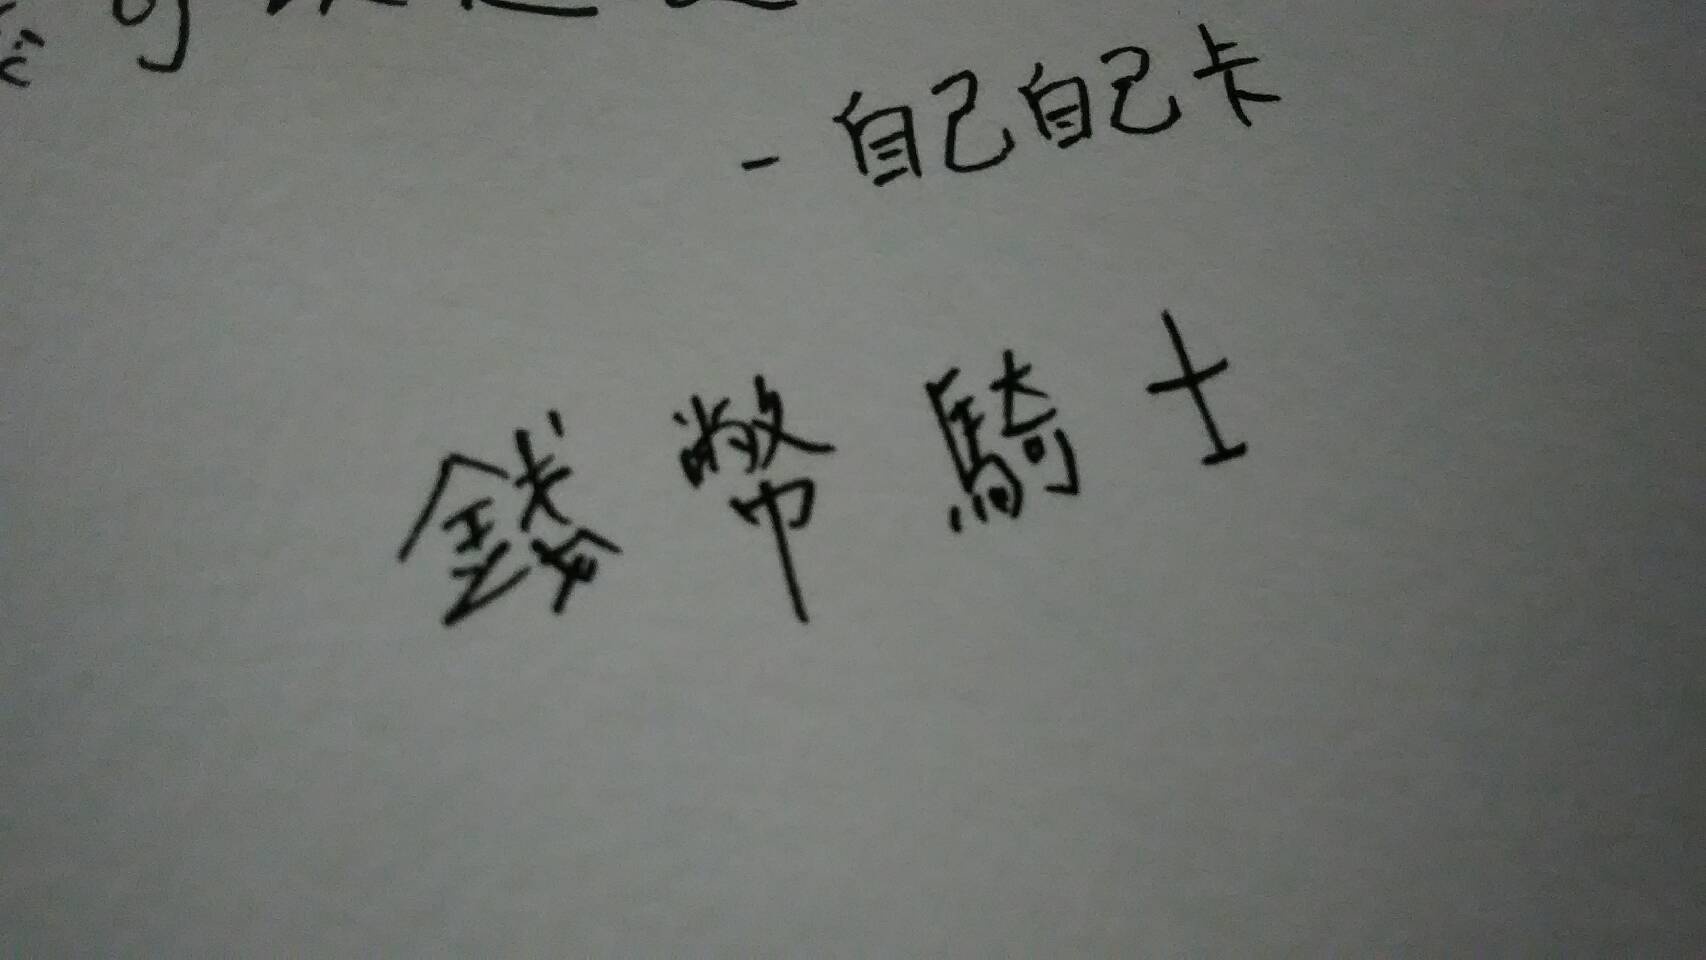 - 自己自己卡
錢幣騎士